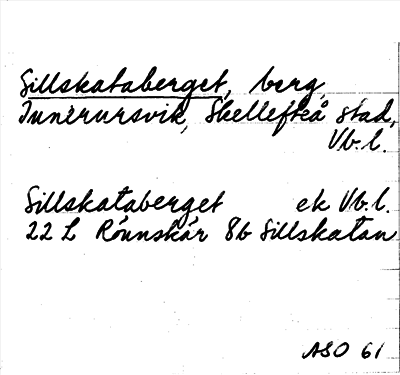 Sillskataberget, berg,
Innerursvik, Skellefteå stad,
Vb.l.
Sillskataberget ek Vb.l.
22 L Rönnskär 8b Sillskatan
ASO 61